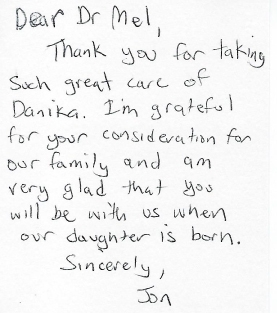 Dear Dr Mel,
Thank you for taking
such great care of
Danika. I'm grateful
for your consideration for
our family and am
very glad that you
will be with us when
our daughter is born.
Sincerely,
Jon